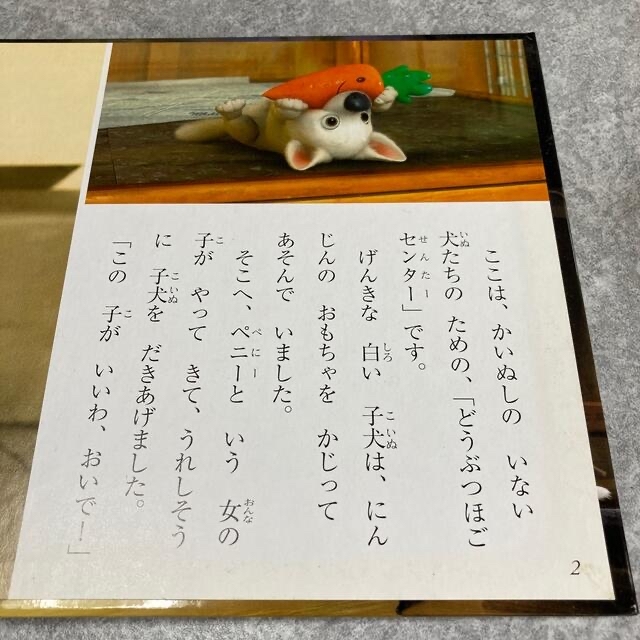 ここは、かいぬしの いない
犬たちの ための、「どうぶつほご
センター」です。
げんきな 白い 子犬は、にん
じんの おもちゃを かじって
あそんで いました。
そこへ、ペニーと いう 女の
子が やって きて、うれしそう
に 子犬を だきあげました。
「この 子が いいわ、おいで！」
2